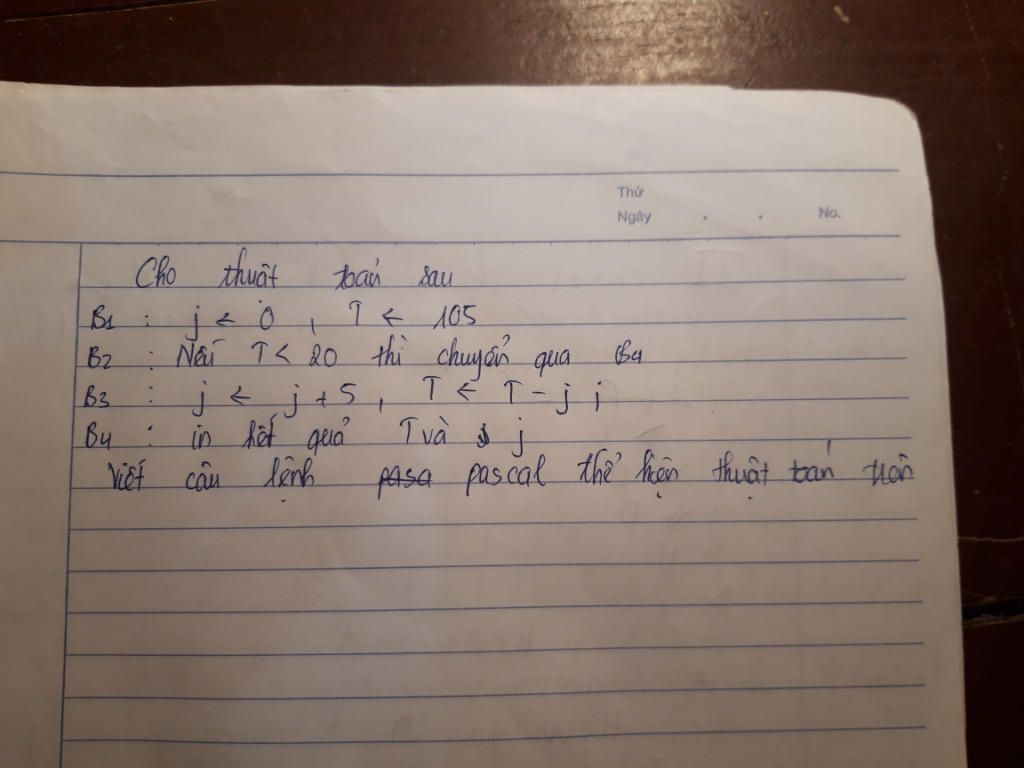 Thứ
Ngày . . No.
Cho thuật toán sau
B1 : j ← 0 , T ← 105
B2 : Nếu T < 20 thì chuyển qua B4
B3 : j ← j + 5 , T ← T - j ;
B4 : in kết quả T và j
Viết câu lệnh pasa pascal thể hiện thuật toán trên